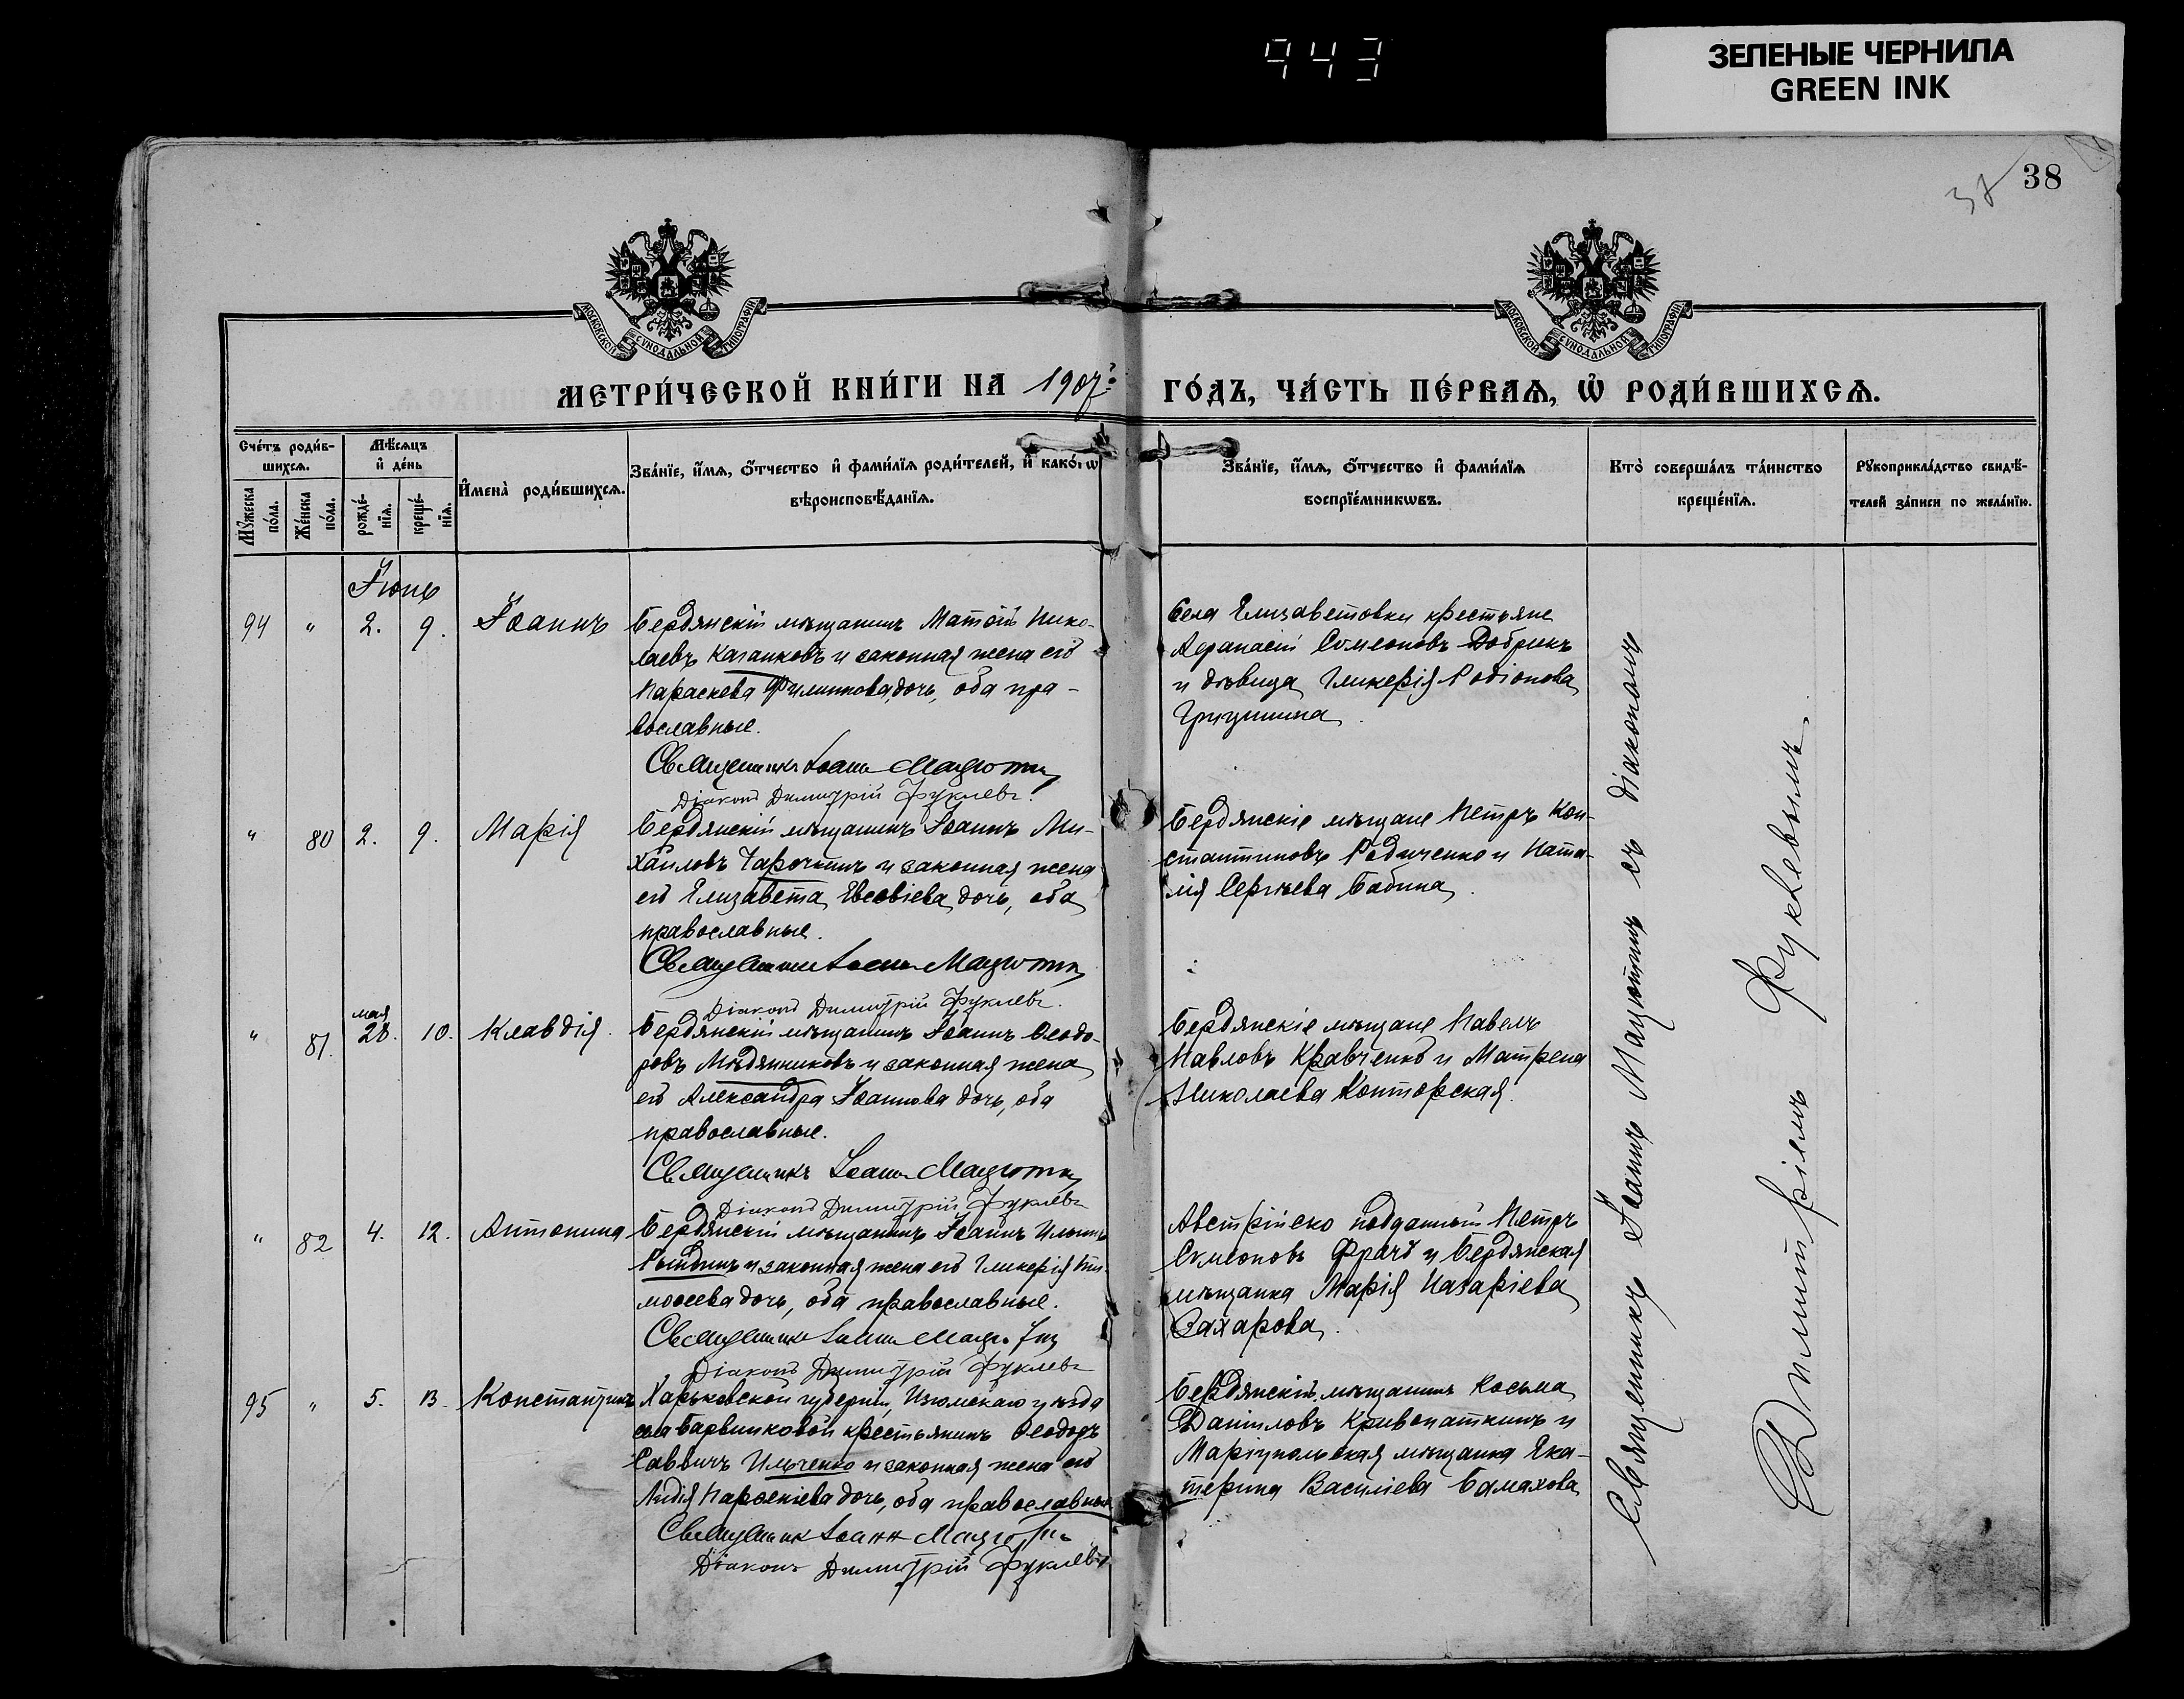 943
ЗЕЛЕНЫЕ ЧЕРНИЛА
GREEN INK
38
37
МОСКОВСКОЙ СѴНОДАЛЬНОЙ ТИПОГРАФІИ
МОСКОВСКОЙ СѴНОДАЛЬНОЙ ТИПОГРАФІИ
МЕТРИ́ЧЕСКОЙ КНИ́ГИ НА 1907 ГО́ДЪ, ЧА́СТЬ ПЕ́РВАѦ, Ѡ҆ РОДИ́ВШИХСѦ.
Сче́тъ роди́в-
шихсѧ.
Мѣ́сѧцъ
и҆ де́нь
Мꙋ́жеска по́ла.
Же́нска по́ла.
рожде́-нїѧ.
креще́-нїѧ.
И҆мена̀ роди́вшихсѧ.
Зва́нїе, и҆́мѧ, ѻ҆́тчество и҆ фами́лїѧ роди́телей, и҆ како́гѡ
вѣроисповѣ́данїѧ.
Зва́нїе, и҆́мѧ, ѻ҆́тчество и҆ фами́лїѧ
воспрїе́мникѡвъ.
Кто̀ соверша́лъ та́инство
креще́нїѧ.
Рꙋкоприкла́дство свидѣ́-
телей за́писи по жела́нїю.
Іюнь
94 " 2. 9. Іоаннъ
Бердянскій мѣщанинъ Матѳій Нико-
лаевъ Каганковъ и законная жена его
Параскева Филиппова дочь, оба пра-
вославные.
Священникъ Іоаннъ Мацютинъ
Діаконъ Димитрій Фуклевъ.
Села Елизаветовки крестьяне
Афанасій Симеоновъ Добрикъ
и дѣвица Гликерія Родіонова
" 80 2. 9. Марія
Бердянскій мѣщанинъ Іоаннъ Ми-
хайловъ Чарочкинъ и законная жена
его Елизавета Евсевіева дочь, оба
православные.
Священникъ Іоаннъ Мацютинъ
Діаконъ Димитрій Фуклевъ.
Бердянскіе мѣщане Петръ Кон-
стантиновъ Радченко и Ната-
лія Сергѣева Бабина
" 81. мая 28. 10. Клавдія.
Бердянскій мѣщанинъ Іоаннъ Ѳеодо-
ровъ Мѣдянниковъ и законная жена
его Александра Іоаннова дочь, оба
православные.
Священникъ Іоаннъ Мацютинъ
Діаконъ Димитрій Фуклевъ
Бердянскіе мѣщане Павелъ
Павловъ Кравченко и Матрена
Николаева Конторская.
" 82 4. 12. Антонина
Бердянскій мѣщанинъ Іоаннъ Ильинъ
и законная жена его Гликерія Ти-
моѳеева дочь, оба православные.
Священникъ Іоаннъ Мацютинъ
Діаконъ Димитрій Фуклевъ
Австрійско подданный Петръ
Симеоновъ и Бердянская
мѣщанка Марія Назаріева
Захарова.
95 " 5. 13. Константинъ
Харьковской губерніи, Изюмскаго уѣзда
села Барвинковой крестьянинъ Ѳеодоръ
Саввичъ Ильченко и законная жена его
Лидія Парѳеніева дочь, оба православные
Священникъ Іоаннъ Мацютинъ
Діаконъ Димитрій Фуклевъ
Бердянскій мѣщанинъ Косьма
Даніиловъ Кривопаткинъ и
Маріупольская мѣщанка Ека-
терина Василіева Бамахова
Священникъ Іоаннъ Мацютинъ съ діакономъ
Димитріемъ Фуклевымъ.